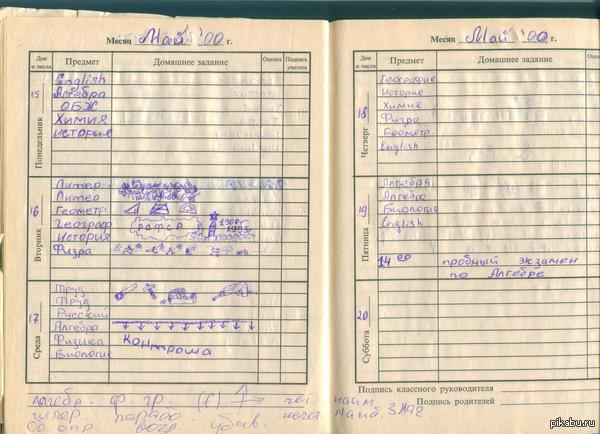 Месяц Май '00 г.
Дни и числа
Предмет
Домашнее задание
Оценка
Подпись учителя
Понедельник
15
English
Алгебра
ОБЖ
Химия
история
Вторник
16
Литер
Литер
Геометр
Географ РСФСР 1900г
История 1993г.
Физра
Среда
17
Труд
Труд
Русский
Алгебра
Физика Контроша
Биология
Алгебр. ф. гр.
(0 опр. возр. убав.
Месяц Май '00 г.
Дни и числа
Предмет
Домашнее задание
Оценка
Подпись учителя
Четверг
18
География
История
Химия
Физра
Геометр.
English
Пятница
19
Алгебра
Алгебра
Биология
English
14 00 пробный экзамен
по Алгебре
Суббота
20
Подпись классного руководителя
Подпись родителей
наим.
наиб. знач.
pikabu.ru